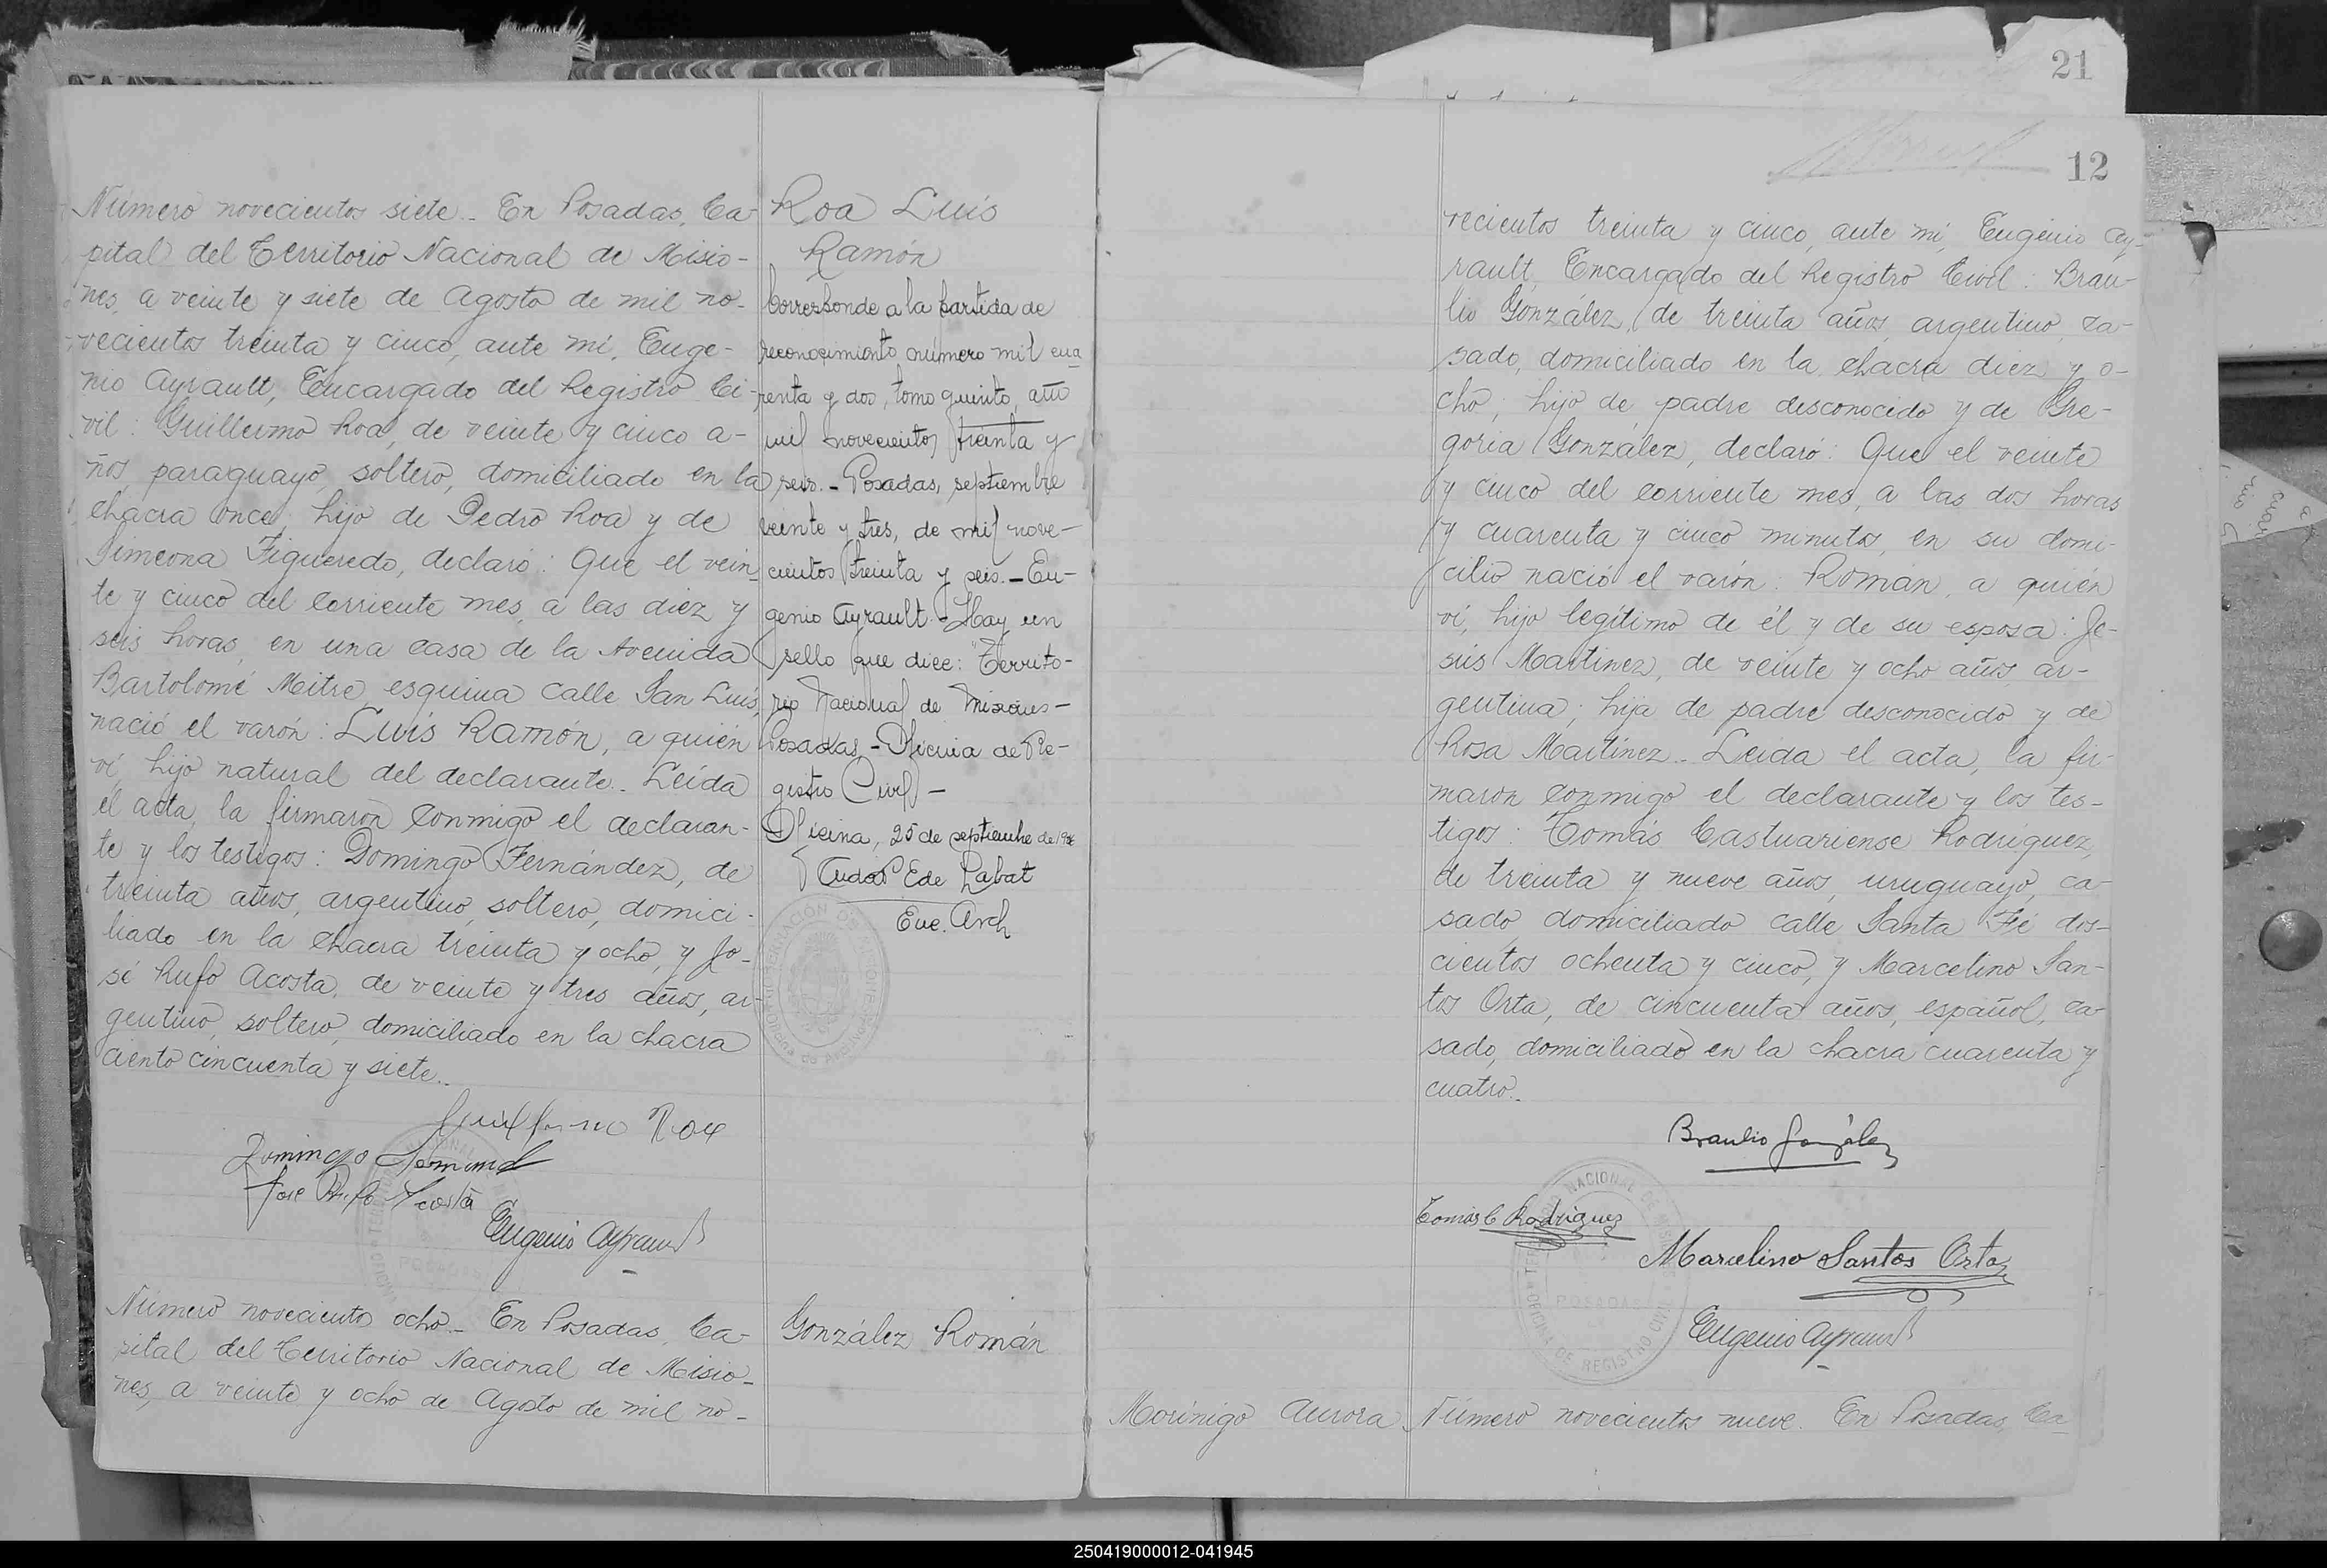 21
12
Número novecientos siete.- En Posadas, Ca-
pital del Territorio Nacional de Misio-
nes, a veinte y siete de Agosto de mil no-
vecientos treinta y cinco, ante mí, Euge-
nio Ayrault, Encargado del Registro Ci-
vil: Guillermo Roa, de veinte y cinco a-
ños, paraguayo, soltero, domiciliado en la
chacra once; hijo de Pedro Roa y de
Simeona Figueredo, declaró: Que el vein-
te y cinco del corriente mes, a las diez y
seis horas, en una casa de la Avenida
Bartolomé Mitre esquina calle San Luis,
nació el varón: Luis Ramón, a quién
ví, hijo natural del declarante.- Leída
el acta, la firmaron conmigo el declaran-
te y los testigos: Domingo Fernández, de
treinta años, argentino, soltero, domici-
liado en la chacra treinta y ocho, y Jo-
sé Rufo Acosta, de veinte y tres años, ar-
gentino, soltero, domiciliado en la chacra
ciento cincuenta y siete.-
Guillermo Roa
Domingo
José Rufo Acosta
Eugenio Ayrault
POSADAS
Número novecientos ocho.- En Posadas, Ca-
pital del Territorio Nacional de Misio-
nes, a veinte y ocho de Agosto de mil no-
Roa Luis
Ramón
Corresponde a la partida de
reconocimiento número mil cua
renta y dos, tomo quinto, año
mil novecientos treinta y
seis.- Posadas, septiembre
veinte y tres, de mil nove-
cientos treinta y seis.- Eu-
genio Ayrault.- Hay un
sello que dice: "Territo-
rio Nacional de Misiones-
Posadas,- Oficina de Re-
gistro Civil-
Oficina, 25 de septiembre de
Labat
Enc. Arch
González Román
vecientos treinta y cinco, ante mí, Eugenio Ay-
rault, Encargado del Registro Civil: Brau-
lio González, de treinta años, argentino, ca-
sado, domiciliado en la chacra diez y o-
cho; hijo de padre desconocido y de Gre-
goria González, declaró: Que el veinte
y cinco del corriente mes, a las dos horas
y cuarenta y cinco minutos, en su domi-
cilio nació el varón: Román, a quién
ví, hijo legítimo de él y de su esposa: Je-
sús Martínez, de veinte y ocho años, ar-
gentina; hija de padre desconocido y de
Rosa Martínez.- Leida el acta, la fir-
maron conmigo el declarante y los tes-
tigos: Tomás Castuariense Rodríguez,
de treinta y nueve años, uruguayo, ca-
sado domiciliado calle Santa Fé dos-
cientos ochenta y cinco, y Marcelino San-
tos Orta, de cincuenta años, español, ca-
sado, domiciliado en la chacra cuarenta y
cuatro.-
Braulio González
Tomás C Rodríguez
Marcelino Santos Orta
Eugenio Ayrault
POSADAS
Morínigo Aurora
Número novecientos nueve. En Posadas, Ca-
250419000012-041945